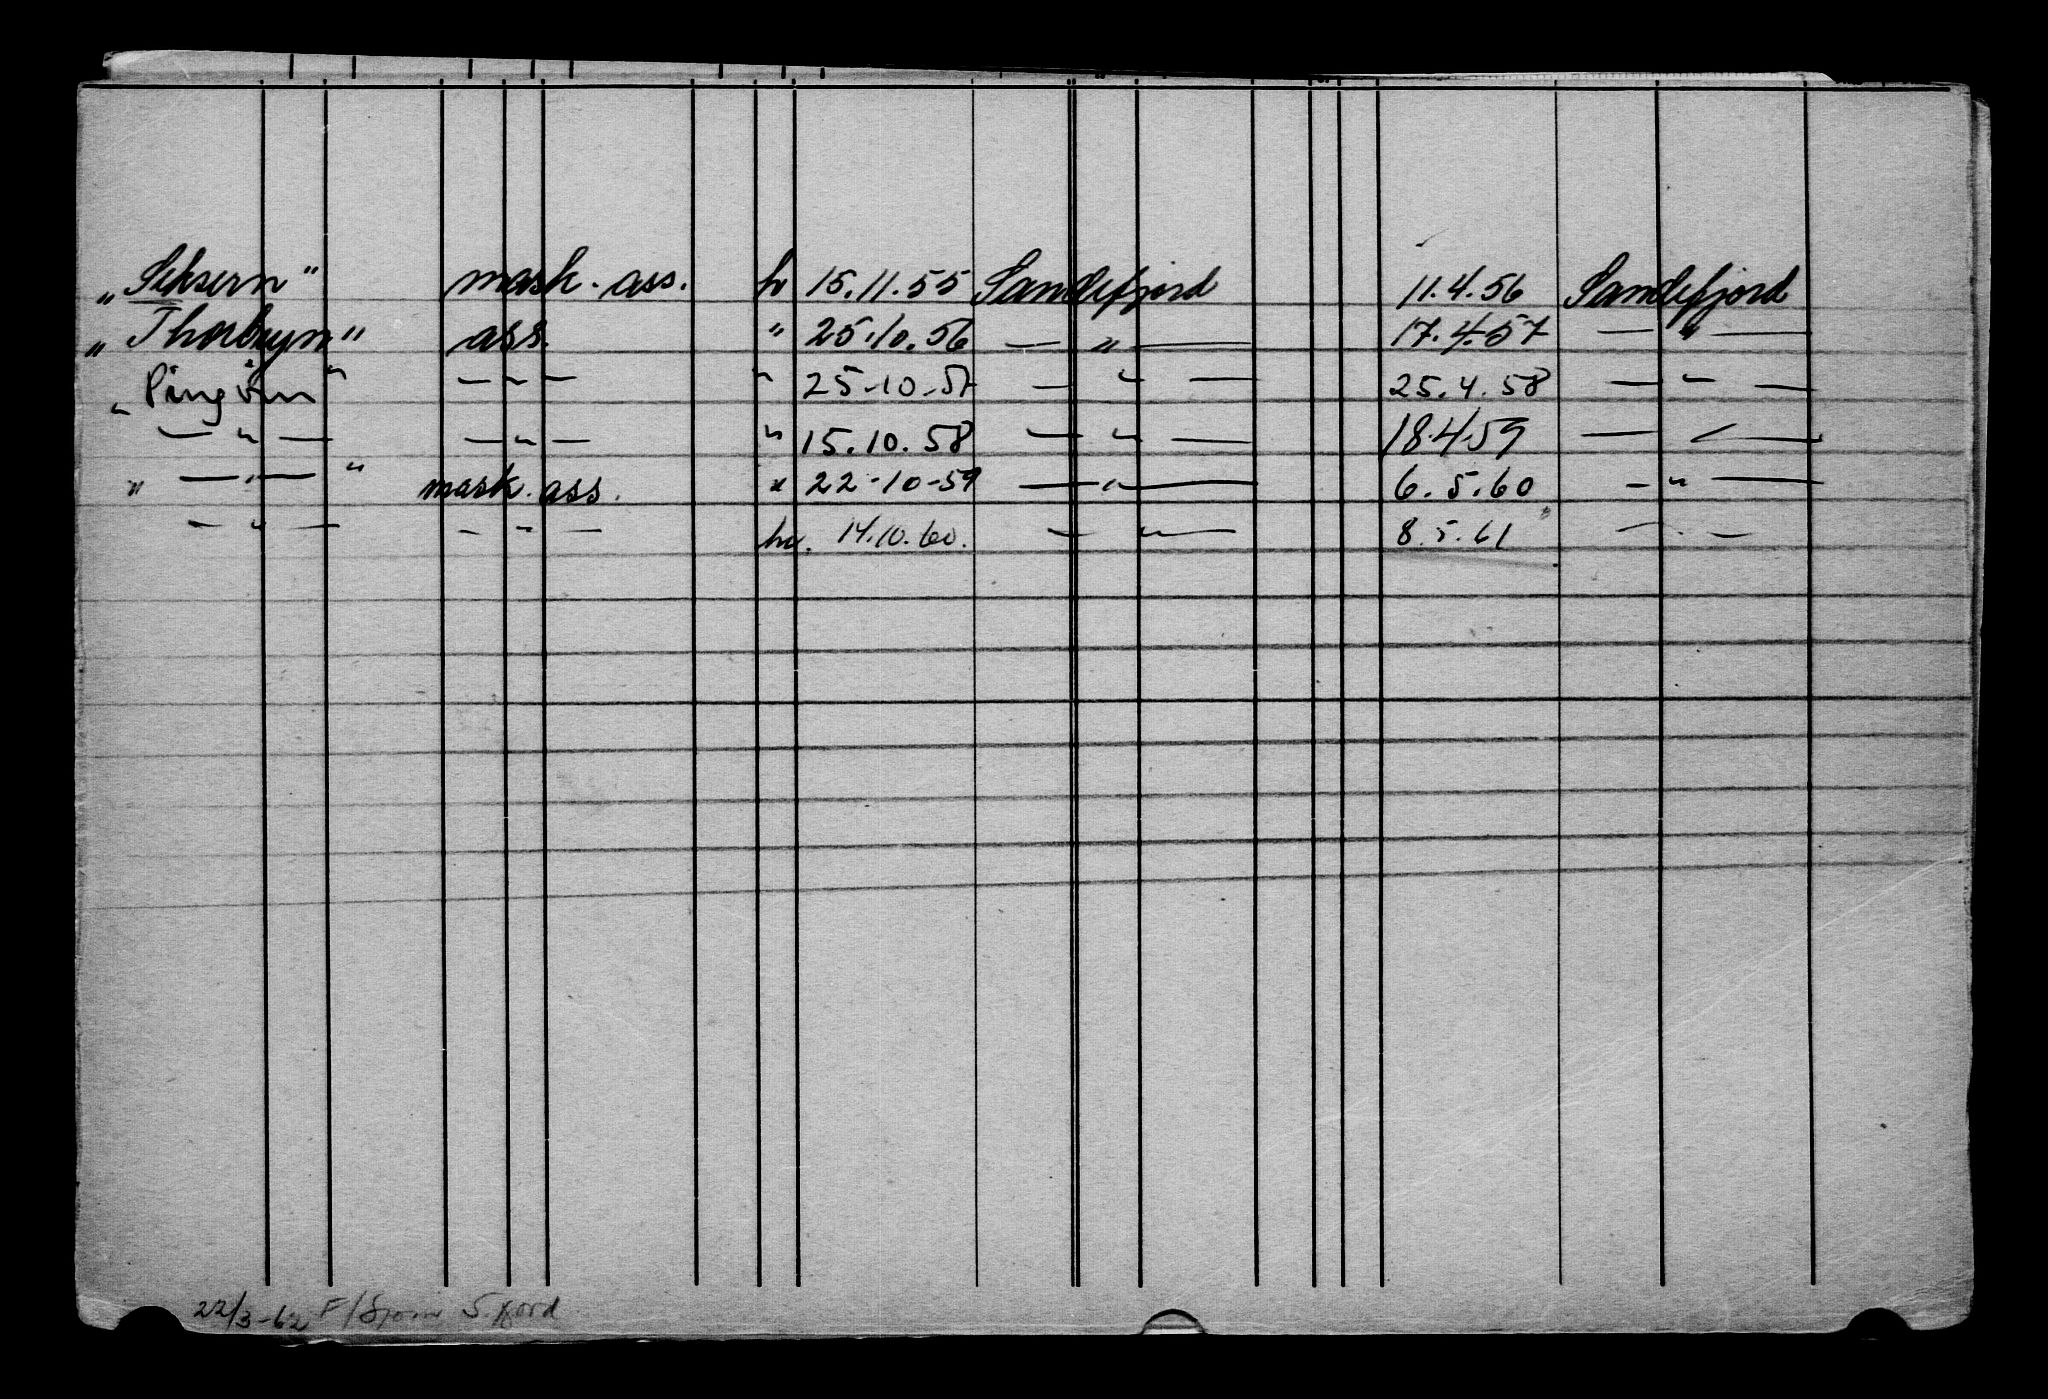 „Seksern" mask. ass. h 15.11.55 Sandefjord 11.4.56 Sandefjord
„Thorbryn" ass. " 25.10.56 — " — 17.4.57 — " —
„Pingvin" — " — " 25-10-57 — " — 25.4.58 — " —
— " — — " — " 15.10.58 — " — 18.4.59 — " —
„ — " — " mask. ass. " 22-10-59 — " — 6.5.60 — " —
— " — — " — hv. 14.10.60. — " — 8.5.61 — " —
22/3-62 F/ S.fjord